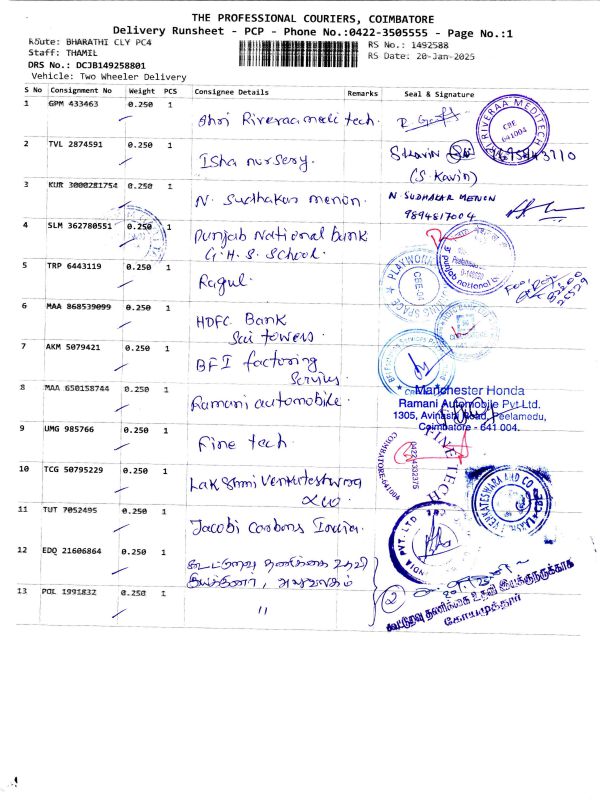 THE PROFESSIONAL COURIERS, COIMBATORE
Delivery Runsheet - PCP - Phone No.:0422-3505555 - Page No.:1
Route: BHARATHI CLY PC4
RS No.: 1492588
Staff: THAMIL
RS Date: 20-Jan-2025
DRS No.: DCJB149258801
Vehicle: Two Wheeler Delivery
S No Consignment No Weight PCS Consignee Details Remarks Seal & Signature
1 GPM 433463 0.250 1 Shri Riveraa meditech.
RIVERAA MEDITECH
CBE
641004
2 TVL 2874591 0.250 1 Isha nursery. S Kavin
(S. Kavin)
3 KUR 3000281754 0.250 1 N. Sudhakar menon. N SUDHAKAR MENON
9894817004
4 SLM 362780551 0.250 1 Punjab National bank
G.H.S. School.
punjab national b
5 TRP 6443119 0.250 1 Ragul.
PLAYWORK
SPACE
6 MAA 868539099 0.250 1 HDFC Bank
Sai towers.
7 AKM 5079421 0.250 1 BFI factoring
Servies.
8 MAA 650158744 0.250 1 Ramani automobile.
Manchester Honda
Ramani Automobile Pvt Ltd.
1305, Avinashi Road, Peelamedu,
Coimbatore - 641 004.
9 UMG 985766 0.250 1 Fine tech
FINE TECH
COIMBATORE-641004
10 TCG 50795229 0.250 1 Lakshmi Venkateshwra
VENKATESWARA AND CO
11 TUT 7052495 0.250 1 Jacobi Carbons India.
INDIA PVT. LTD
12 EDQ 21606864 0.250 1 கூட்டுறவு தணிக்கை உதவி
இயக்குனர், அலுவலகம்
2
கூட்டுறவு தணிக்கை உதவி இயக்குநருக்காக
கோயமுத்தூர்
13 POL 1991832 0.250 1 "